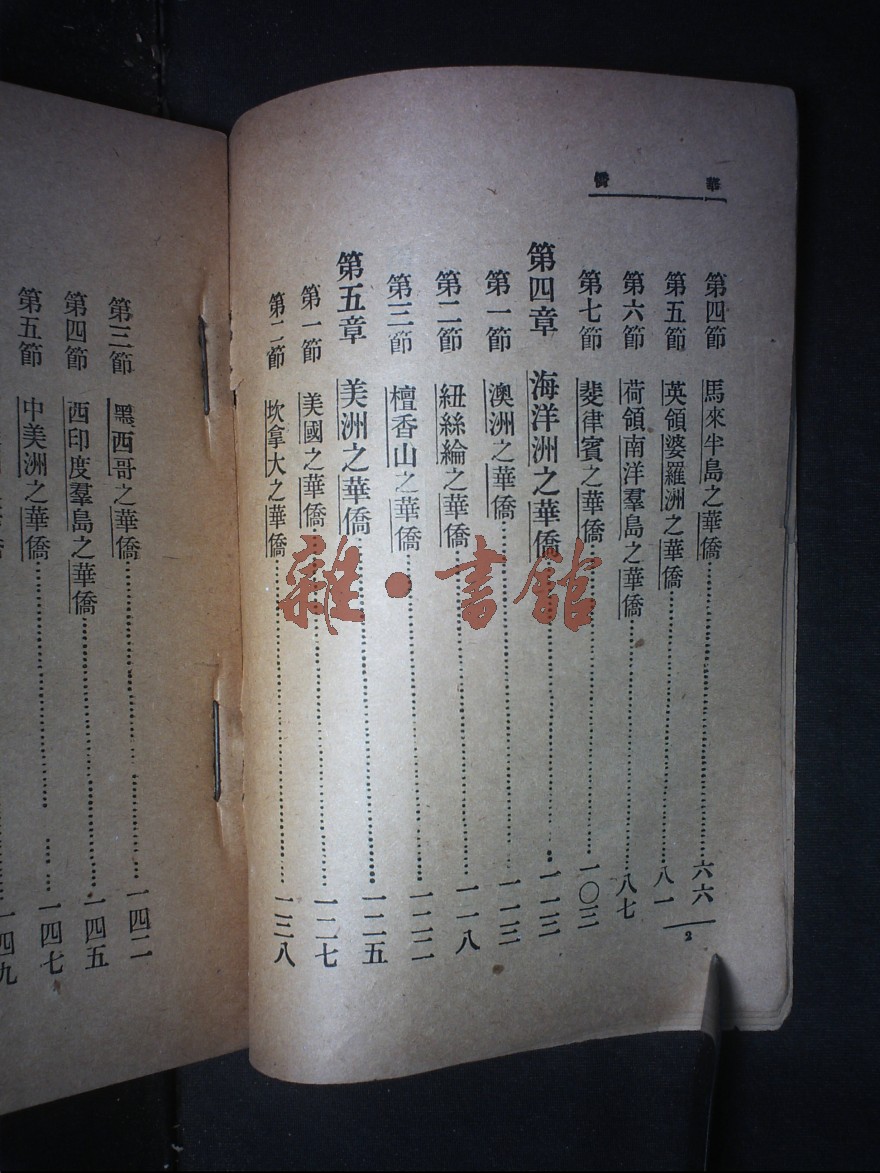 華僑
第四節 馬來半島之華僑……六六
第五節 英領婆羅洲之華僑……八一
第六節 荷領南洋羣島之華僑……八七
第七節 斐律賓之華僑……一〇三
第四章 海洋洲之華僑……一一三
第一節 澳洲之華僑……一一三
第二節 紐絲綸之華僑……一一八
第三節 檀香山之華僑……一二二
第五章 美洲之華僑……一二五
第一節 美國之華僑……一二七
第二節 坎拿大之華僑……一三八
2
第三節 墨西哥之華僑……一四二
第四節 西印度羣島之華僑……一四五
第五節 中美洲之華僑……一四七
一四九
雜·書館